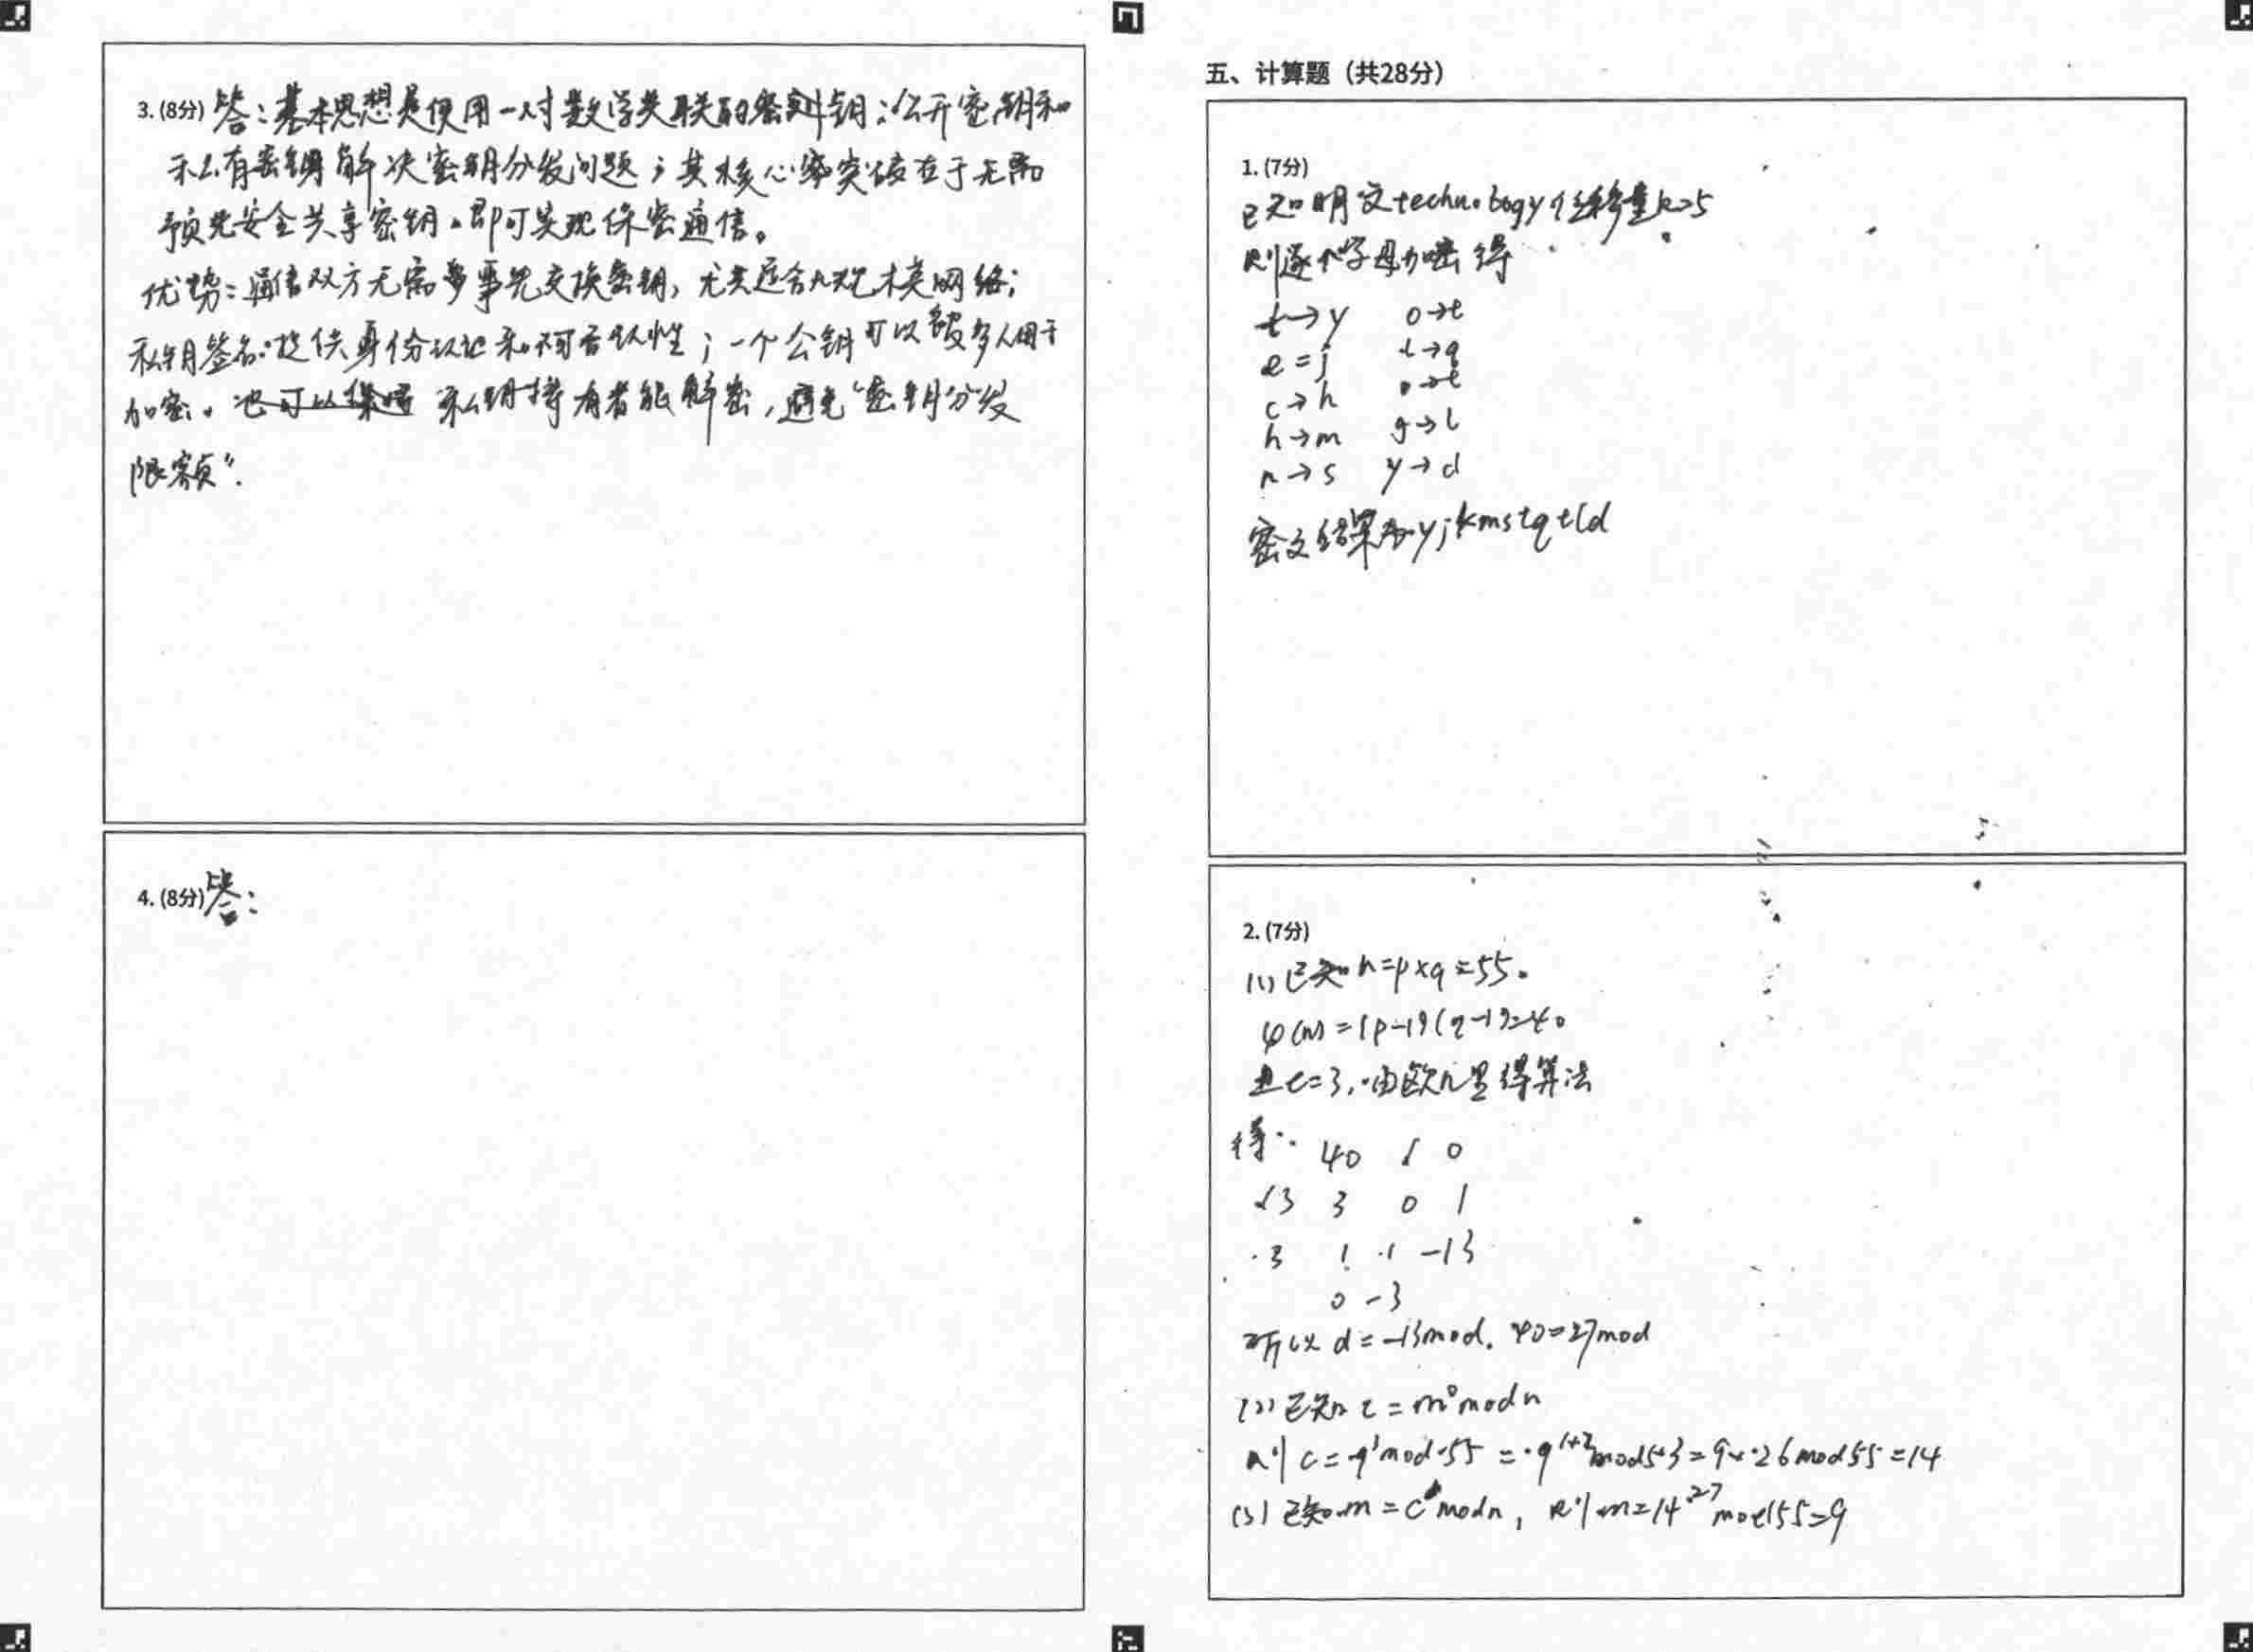 3. (8分) 答：基本思想是使用一对数学关联的密钥：公开密钥和
私有密钥解决密钥分发问题；其核心突破在于无需
预先安全共享密钥。即可实现保密通信。
优势：通信双方无需事先交换密钥，尤其适合大规模网络；
私钥签名：提供身份认证和不可否认性；一个公钥可以被多人用于
加密。私钥持有者能解密，避免“密钥分发
限额”.
4. (8分) 答：
五、计算题（共28分）
1. (7分)
已知明文technology 位移量k=5
则逐个字母加密得
t→y o→t
e=j l→q
c→h o→t
h→m g→l
n→s y→d
密文结果为yjkmstqtld
2. (7分)
(1) 已知n=p×q=55。
φ(n)=(p-1)(q-1)=40
且e=3，由欧几里得算法
得：40 1 0
13 3 0 1
3 1 1 -13
0 -3
所以 d=-13mod. 40=27mod
(2) 已知 c=m^e mod n
则 c=9^3 mod 55 = 9^1+2 mod 55 = 9×26 mod 55 = 14
(3) 已知 m=c^d mod n，则 m=14^27 mod 55=9